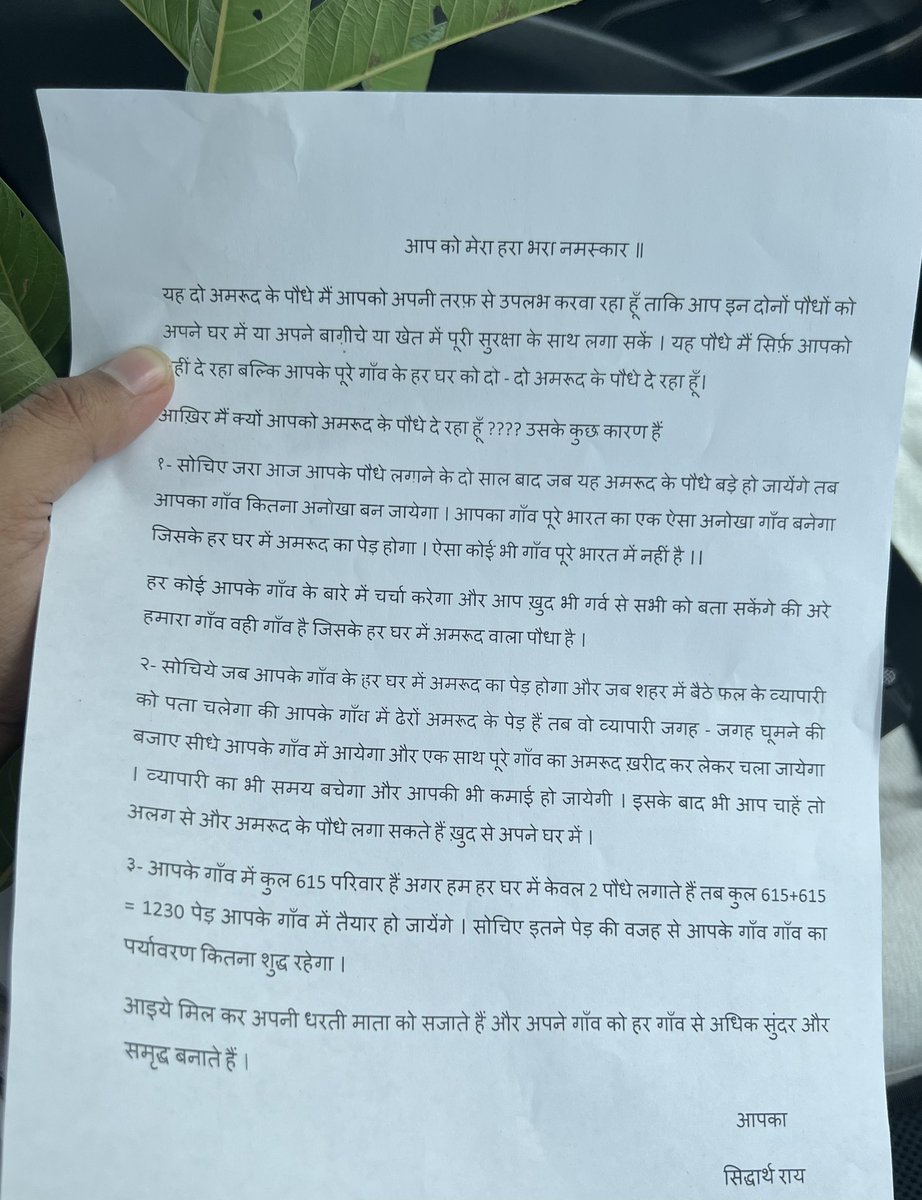 आप को मेरा हरा भरा नमस्कार ॥
यह दो अमरूद के पौधे मैं आपको अपनी तरफ़ से उपलभ करवा रहा हूँ ताकि आप इन दोनों पौधों को
अपने घर में या अपने बाग़ीचे या खेत में पूरी सुरक्षा के साथ लगा सकें । यह पौधे मैं सिर्फ़ आपको
नहीं दे रहा बल्कि आपके पूरे गाँव के हर घर को दो - दो अमरूद के पौधे दे रहा हूँ।
आख़िर मैं क्यों आपको अमरूद के पौधे दे रहा हूँ ???? उसके कुछ कारण हैं
१- सोचिए जरा आज आपके पौधे लगाने के दो साल बाद जब यह अमरूद के पौधे बड़े हो जायेंगे तब
आपका गाँव कितना अनोखा बन जायेगा । आपका गाँव पूरे भारत का एक ऐसा अनोखा गाँव बनेगा
जिसके हर घर में अमरूद का पेड़ होगा । ऐसा कोई भी गाँव पूरे भारत में नहीं है ।।
हर कोई आपके गाँव के बारे में चर्चा करेगा और आप ख़ुद भी गर्व से सभी को बता सकेंगे की अरे
हमारा गाँव वही गाँव है जिसके हर घर में अमरूद वाला पौधा है ।
२- सोचिये जब आपके गाँव के हर घर में अमरूद का पेड़ होगा और जब शहर में बैठे फल के व्यापारी
को पता चलेगा की आपके गाँव में ढेरों अमरूद के पेड़ हैं तब वो व्यापारी जगह - जगह घूमने की
बजाए सीधे आपके गाँव में आयेगा और एक साथ पूरे गाँव का अमरूद ख़रीद कर लेकर चला जायेगा
। व्यापारी का भी समय बचेगा और आपकी भी कमाई हो जायेगी । इसके बाद भी आप चाहें तो
अलग से और अमरूद के पौधे लगा सकते हैं ख़ुद से अपने घर में ।
३- आपके गाँव में कुल 615 परिवार हैं अगर हम हर घर में केवल 2 पौधे लगाते हैं तब कुल 615+615
= 1230 पेड़ आपके गाँव में तैयार हो जायेंगे । सोचिए इतने पेड़ की वजह से आपके गाँव गाँव का
पर्यावरण कितना शुद्ध रहेगा ।
आइये मिल कर अपनी धरती माता को सजाते हैं और अपने गाँव को हर गाँव से अधिक सुंदर और
समृद्ध बनाते हैं ।
आपका
सिद्धार्थ राय